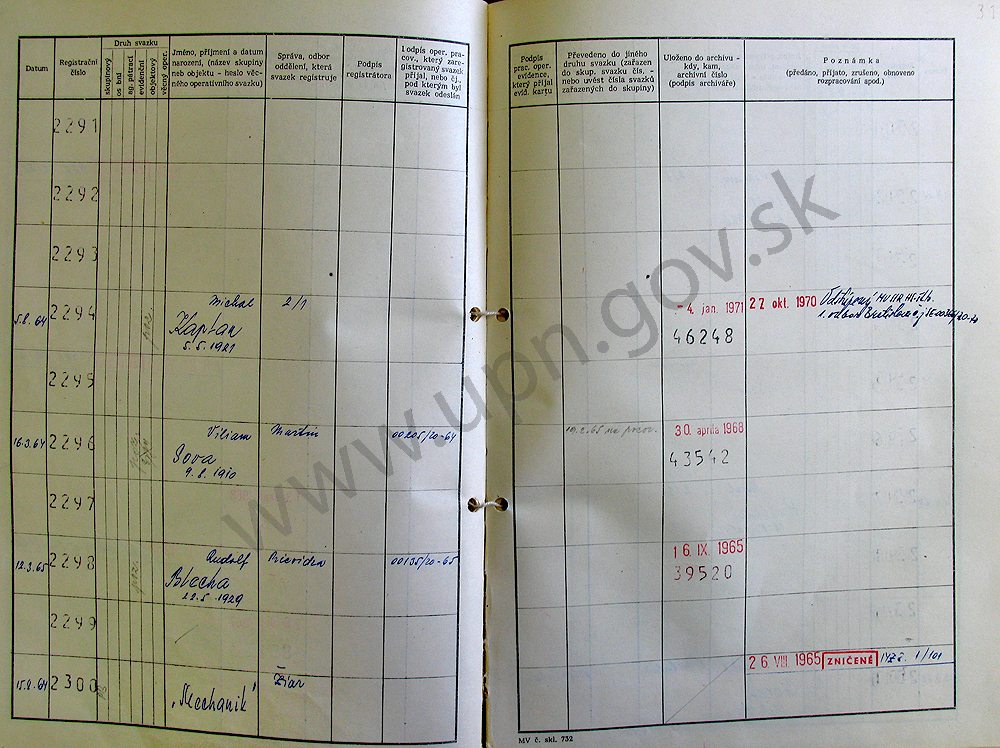 31
Datum
Registrační
číslo
Druh svazku
skupinový
osobní
ag. pátrací
evidenční
objektový
věcný oper.
Jméno, příjmení a datum
narození, (název skupiny
neb objektu - heslo věc-
ného operativního svazku)
Správa, odbor
oddělení, která
svazek registruje
Podpis
registrátora
Podpis oper. pra-
cov., který zare-
gistrovaný svazek
přijal, nebo čj.
pod kterým byl
svazek odeslán
Podpis
prac. oper.
evidence,
který přijal
evid. kartu
Převedeno do jiného
druhu svazku (zařazen
do skup. svazku čís. -
nebo uvést čísla svazků
zařazených do skupiny)
Uloženo do archivu -
kdy, kam,
archivní číslo
(podpis archiváře)
Poznámka
(předáno, přijato, zrušeno, obnoveno
rozpracování apod.)
2291
2292
2293
5.8.64 2294 Michal 2/1 - 4. jan. 1971 22 okt. 1970
Kaplan
5.5.1921 46248
2295
16.3.64 2296 Viliam Martin 00205/20-64 30 apríla 1968
Sova
9.8.1910 43542
2297
12.3.65 2298 Rudolf Prievidza 00135/20-65 16 IX. 1965
Blecha 39520
22.5.1929
2299
26 VIII 1965 ZNIČENÉ 1/101
15.8.64 2300 Žiar
"Mechanik"
MV č. skl. 732
www.upn.gov.sk